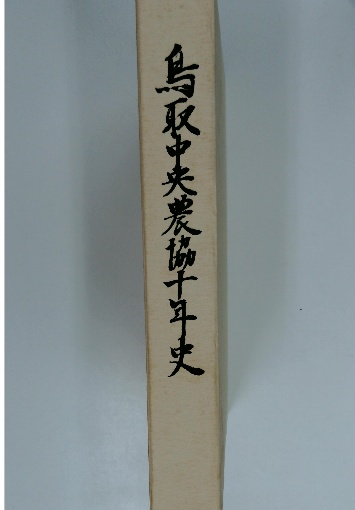 鳥取中央農協十年史